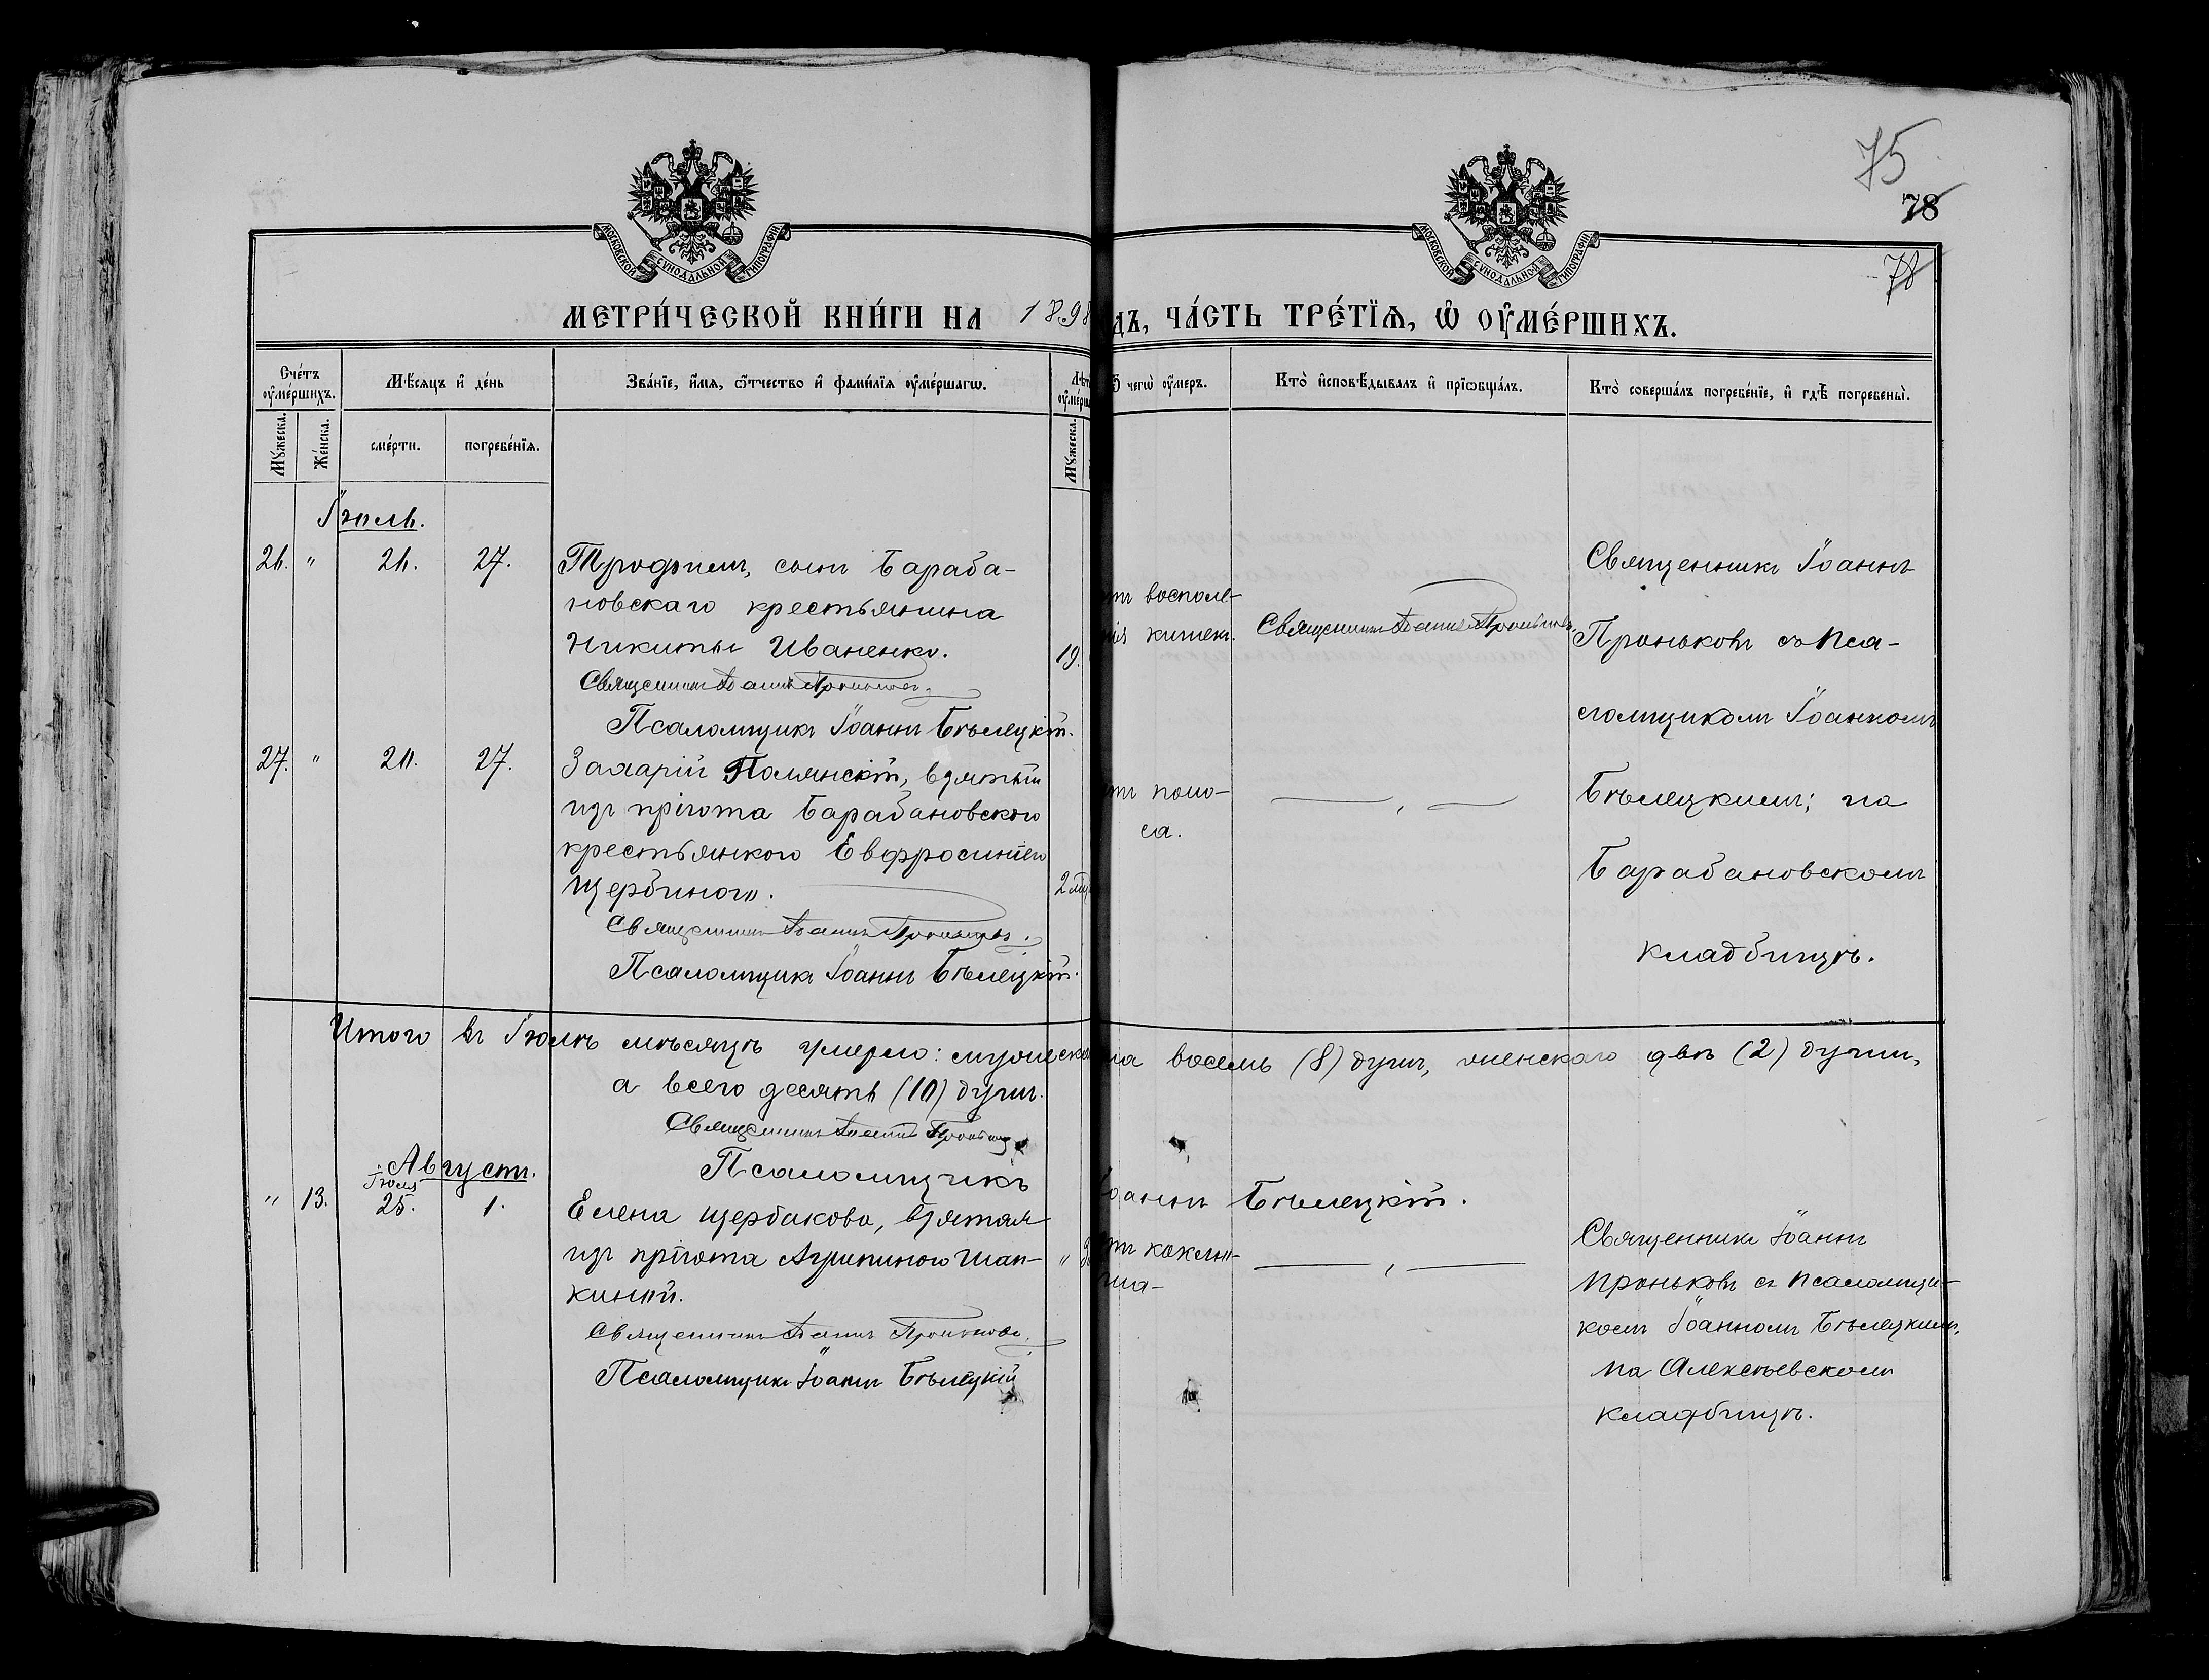 75
78
78
МОСКОВСКОЙ СѴНОДАЛЬНОЙ ТИПОГРАФІИ
МОСКОВСКОЙ СѴНОДАЛЬНОЙ ТИПОГРАФІИ
МЕТРИ́ЧЕСКОЙ КНИ́ГИ НА 1898
ДЪ, ЧА́СТЬ ТРЕ́ТЇѦ, Ѡ҆ ОУ҆МЕ́РШИХЪ.
Сче́тъ оу҆ме́ршихъ.
Мѣ́сяцъ и҆ де́нь
Зва́нїе, и҆́мя, ѻ҆́тчество и҆ фами́лїя оу҆ме́ршагѡ.
Ѿ чегѡ̀ оу҆́меръ.
Кто̀ и҆сповѣ́дывалъ и҆ прїѡбща́лъ.
Кто̀ соверша́лъ погребе́нїе, и҆ гдѣ̀ погребены̀.
Мꙋ́жеска.
Же́нска.
сме́рти.
погребе́нїя.
Мꙋ́жеска.
Іюль.
26. " 26. 27. Трофимъ, сынъ Бараба-
новскаго крестьянина
Никиты Иваненко. 19.
Священникъ Іоаннъ Проньковъ.
Псаломщикъ Іоаннъ Бѣлецкій.
воспале-
кишек. Священникъ Іоаннъ Проньковъ.
Священникъ Іоаннъ
Проньковъ съ пса-
ломщикомъ Іоанномъ
Бѣлецкимъ; на
Барабановскомъ
кладбищѣ.
27. " 20. 27. Захарій Полянскій, взятый
изъ пріюта Барабановскою
крестьянкою Евфросиніею
Щербиною. 2
Священникъ Іоаннъ Проньковъ.
Псаломщикъ Іоаннъ Бѣлецкій.
поно-
са.
Итого въ Іюлѣ мѣсяцѣ умерло: мужеска
ла восемь (8) душъ, женскаго двѣ (2) души,
а всего десять (10) душъ.
Священникъ Іоаннъ Проньковъ
Псаломщикъ
Іоаннъ Бѣлецкій.
Августъ.
Іюля
" 13. 25. 1. Елена Щербакова, взятая
изъ пріюта Агрипиною Шап-
киной.
Священникъ Іоаннъ Проньковъ.
Псаломщикъ Іоаннъ Бѣлецкій
коклю-
ша-
Священникъ Іоаннъ
Проньковъ съ псаломщи-
комъ Іоанномъ Бѣлецкимъ,
на Алексѣевскомъ
кладбищѣ.